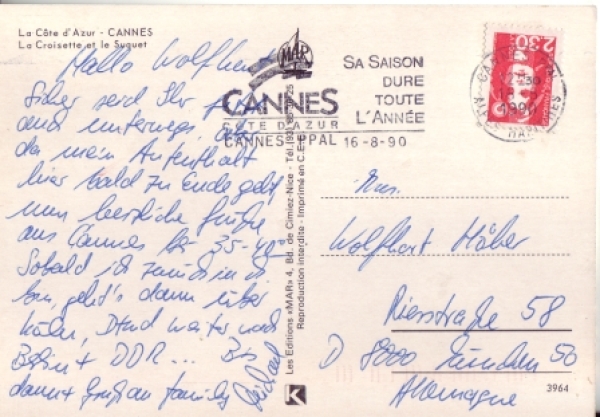 La Côte d'Azur - CANNES
La Croisette et le Suquet
Hallo Wolfhart
Sicher seid Ihr
und unterwegs,
da mein Aufenthalt
hier bald zu Ende geht
nun herzliche Grüße
aus Cannes bei 35-40°
Sobald ich zurück in
bin, geht's dann über
Köln, Dtmd weiter nach
Berlin + DDR... Bis
dann + Gruß an family
MAR
CANNES
CÔTE D'AZUR
CANNES PPAL 16-8-90
SA SAISON
DURE
TOUTE
L'ANNÉE
2,30
1990
ALPES MARITIMES
Les Editions «MAR» 4, Bd. de Cimiez-Nice - Tél. (93)
Reproduction interdite - Imprimé en C.E.E.
K
Wolfhart
Riesstraße 58
D 8000 München 50
Allemagne
3964